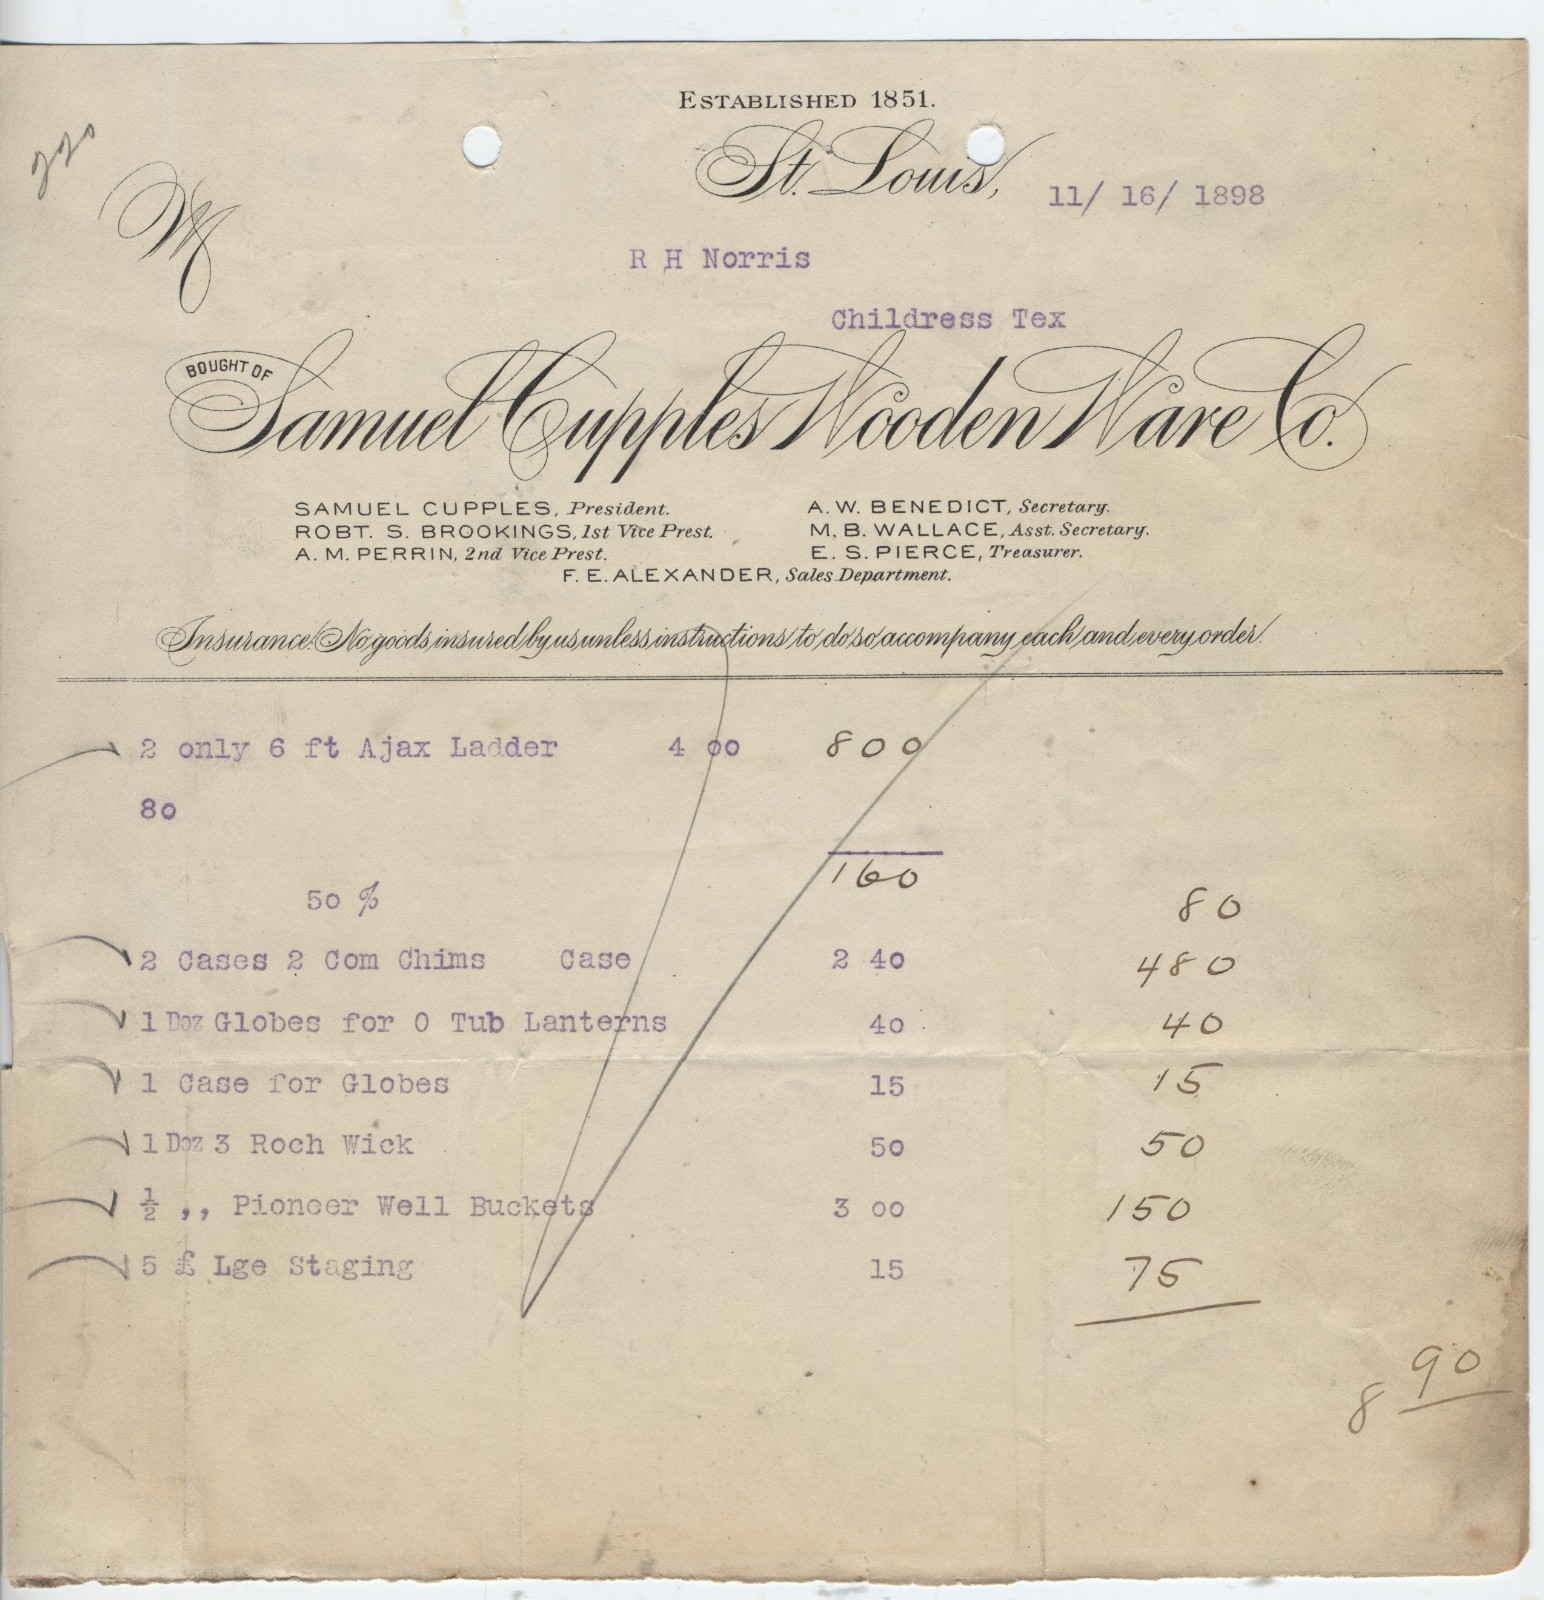 ESTABLISHED 1851.
St. Louis, 11/ 16/ 1898
220
M
R H Norris
Childress Tex
BOUGHT OF
Samuel Cupples Wooden Ware Co.
SAMUEL CUPPLES, President. A. W. BENEDICT, Secretary.
ROBT. S. BROOKINGS, 1st Vice Prest. M. B. WALLACE, Asst. Secretary.
A. M. PERRIN, 2nd Vice Prest. E. S. PIERCE, Treasurer.
F. E. ALEXANDER, Sales Department.
Insurance: No goods insured by us unless instructions to do so accompany each and every order.
2 only 6 ft Ajax Ladder 4 00 800
80
160
50 % 80
2 Cases 2 Com Chims Case 2 40 480
1 Doz Globes for 0 Tub Lanterns 40 40
1 Case for Globes 15 15
1 Doz 3 Roch Wick 50 50
½ ,, Pioneer Well Buckets 3 00 150
5 £ Lge Staging 15 75
8 90